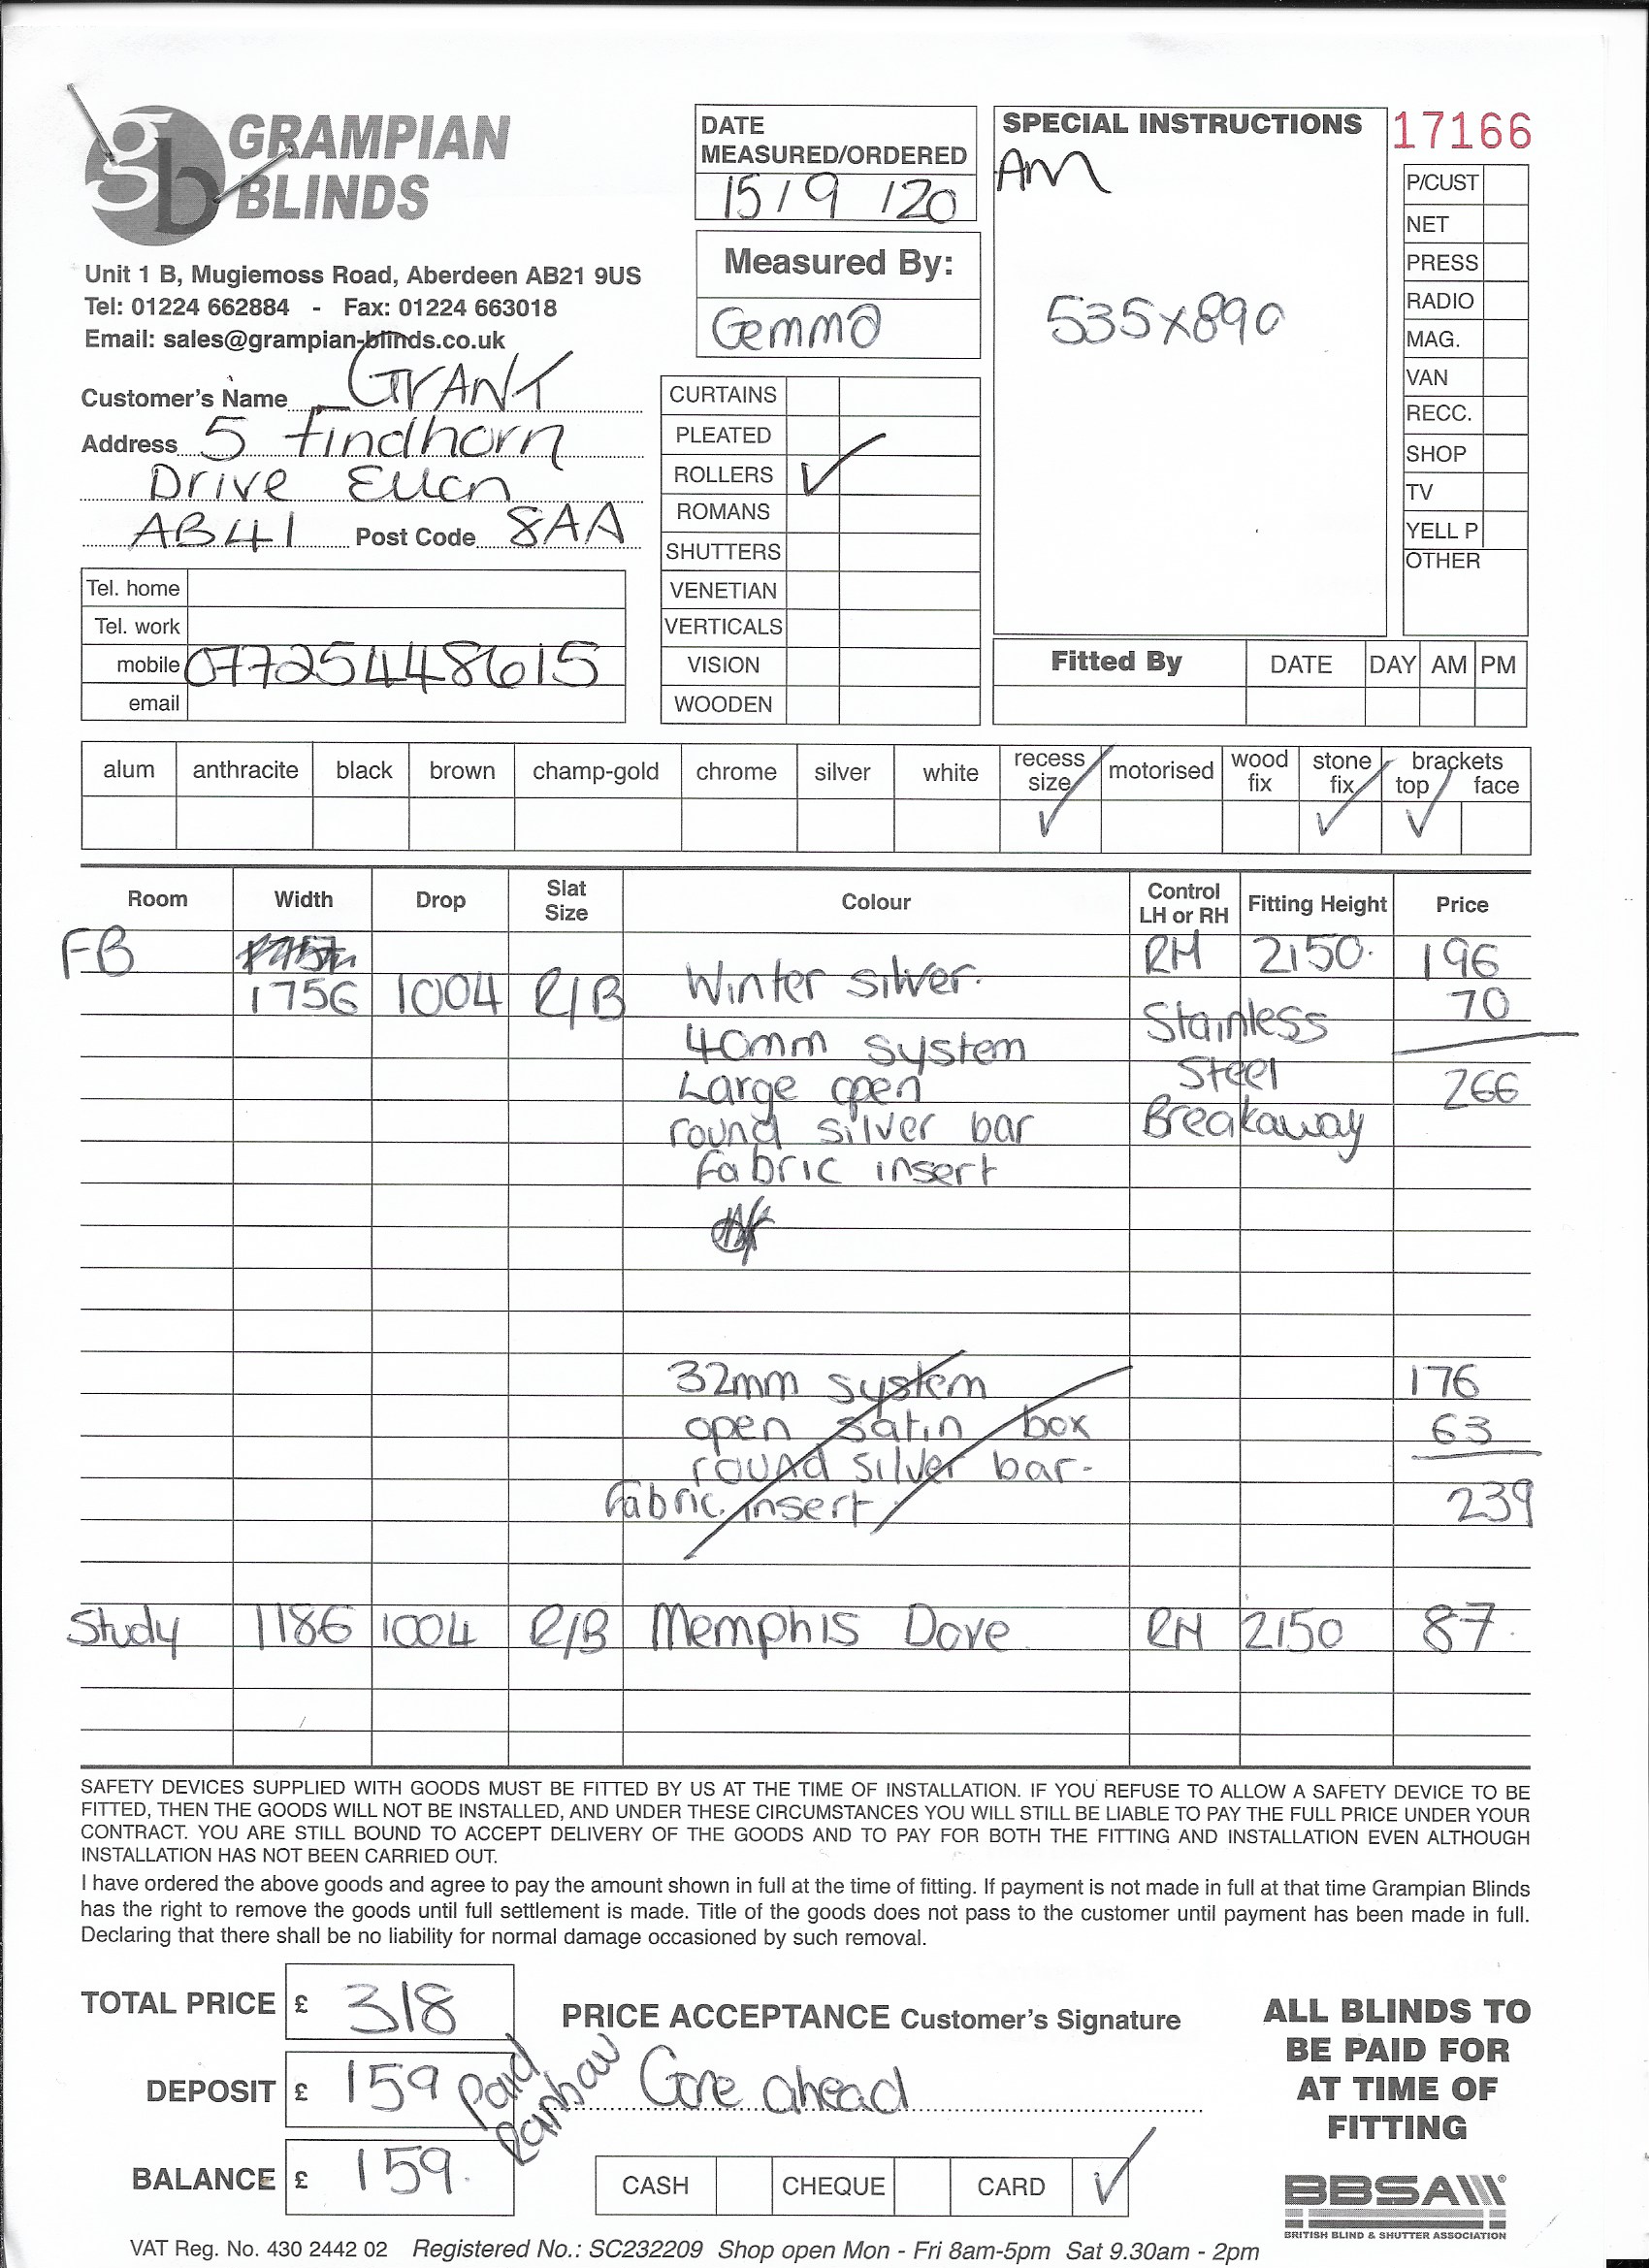 GRAMPIAN
BLINDS
Unit 1 B, Mugiemoss Road, Aberdeen AB21 9US
Tel: 01224 662884 - Fax: 01224 663018
Email: sales@grampian-blinds.co.uk
Customer's Name GRANT
Address 5 Findhorn
Drive Ellon
AB41 Post Code 8AA
Tel. home
Tel. work
mobile 07725448615
email
DATE
MEASURED/ORDERED
15/9/20
Measured By:
Gemma
CURTAINS
PLEATED
ROLLERS ✓
ROMANS
SHUTTERS
VENETIAN
VERTICALS
VISION
WOODEN
SPECIAL INSTRUCTIONS
AM
535x890
17166
P/CUST
NET
PRESS
RADIO
MAG.
VAN
RECC.
SHOP
TV
YELL P
OTHER
Fitted By DATE DAY AM PM
alum anthracite black brown champ-gold chrome silver white recess size ✓ motorised wood fix stone fix ✓ brackets top ✓ face
Room Width Drop Slat Size Colour Control LH or RH Fitting Height Price
FB RH 2150. 196
1756 1004 R/B Winter silver. 70
40mm system Stainless
Large open Steel 266
round silver bar Breakaway
fabric insert
32mm system 176
open satin box 63
round silver bar.
fabric insert. 239
Study 1186 1004 R/B Memphis Dove RH 2150 87.
SAFETY DEVICES SUPPLIED WITH GOODS MUST BE FITTED BY US AT THE TIME OF INSTALLATION. IF YOU REFUSE TO ALLOW A SAFETY DEVICE TO BE
FITTED, THEN THE GOODS WILL NOT BE INSTALLED, AND UNDER THESE CIRCUMSTANCES YOU WILL STILL BE LIABLE TO PAY THE FULL PRICE UNDER YOUR
CONTRACT. YOU ARE STILL BOUND TO ACCEPT DELIVERY OF THE GOODS AND TO PAY FOR BOTH THE FITTING AND INSTALLATION EVEN ALTHOUGH
INSTALLATION HAS NOT BEEN CARRIED OUT.
I have ordered the above goods and agree to pay the amount shown in full at the time of fitting. If payment is not made in full at that time Grampian Blinds
has the right to remove the goods until full settlement is made. Title of the goods does not pass to the customer until payment has been made in full.
Declaring that there shall be no liability for normal damage occasioned by such removal.
TOTAL PRICE £ 318
DEPOSIT £ 159 Paid
BALANCE £ 159.
PRICE ACCEPTANCE Customer's Signature
Gone ahead
CASH CHEQUE CARD ✓
ALL BLINDS TO
BE PAID FOR
AT TIME OF
FITTING
BBSA
BRITISH BLIND & SHUTTER ASSOCIATION
VAT Reg. No. 430 2442 02 Registered No.: SC232209 Shop open Mon - Fri 8am-5pm Sat 9.30am - 2pm